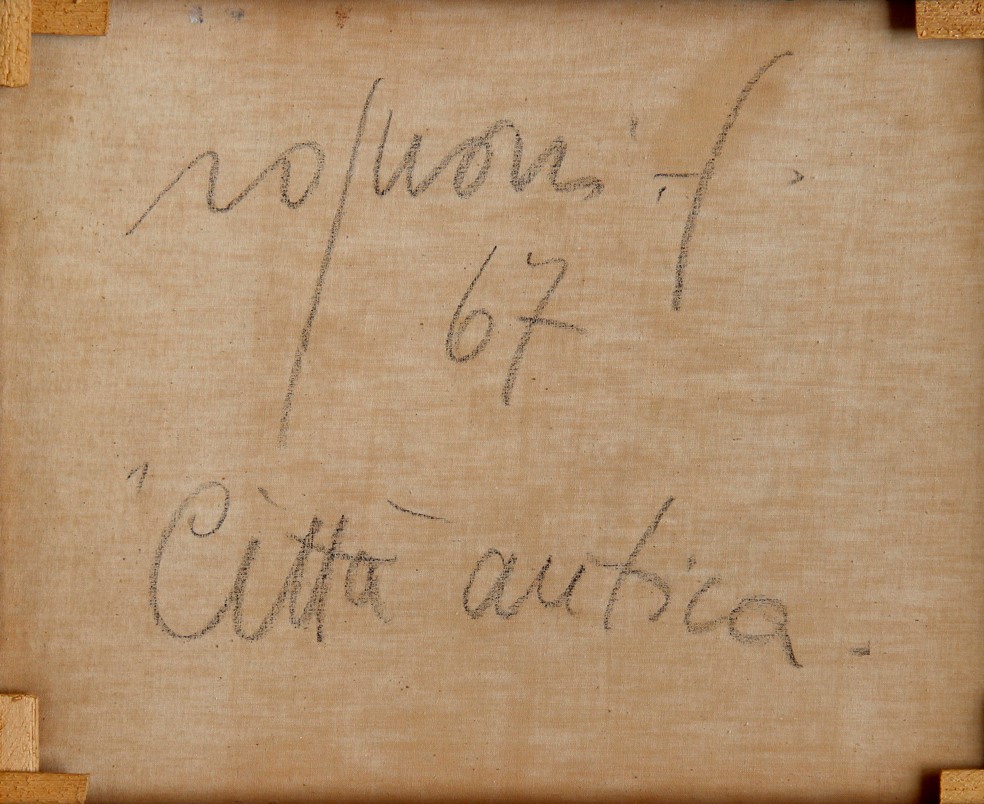 rognoni f.
67
"Città antica.